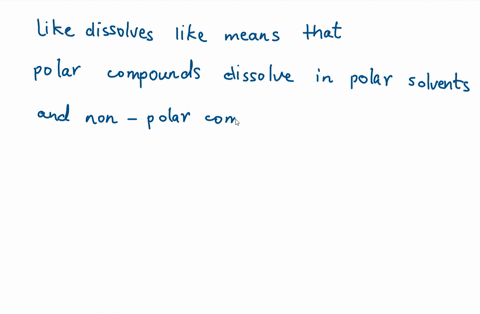 Like dissolves like means that
polar compounds dissolve in polar solvents
and non - polar com